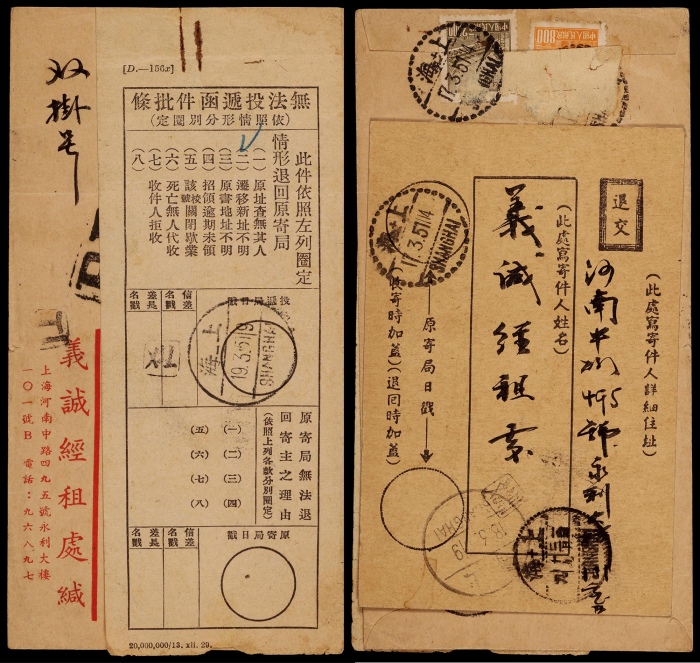 [D.—156x]
雙掛号
無法投遞函件批條
(依照情形分別圈定)
此件依照左列圈定
情形退回原寄局
(一) 原址查無其人
(二) 遷移新址不明
(三) 原書地址不明
(四) 招領逾期未領
(五) 該號關閉歇業
(六) 死亡無人代收
(七) 收件人拒收
(八)
投遞局日戳
信差名戳
差長名戳
上海
19.3.51
SHANGHAI
原寄局無法退
回寄主之理由
(依照上列各款分別圈定)
(一) (二) (三) (四)
(五) (六) (七) (八)
原寄局日戳
信差名戳
差長名戳
20,000,000/13. xii. 29.
義誠經租處緘
上海河南中路四九五號永利大樓
一〇一號B 電話:九六八九七
800
上海
17.3.51
SHANGHAI
退交
(此處寫寄件人詳細住址)
河南中路495號永利大樓
(此處寫寄件人姓名)
義誠經租處
原寄局日戳
(收寄時加蓋)(退回時加蓋)
上海
17.3.51
SHANGHAI
上海